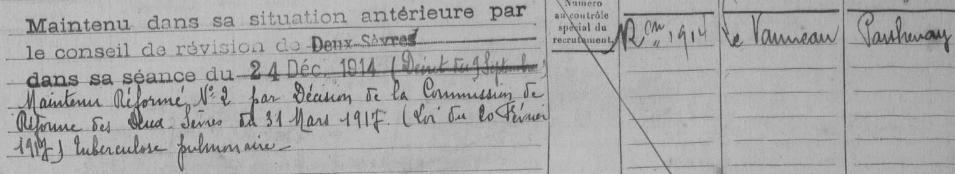 Maintenu dans sa situation antérieure par
le conseil de révision de Deux-Sèvres
dans sa séance du 24 Déc. 1914 (Décret du 9 Septembre)
Maintenu Réformé N°2 par Décision de la Commission de
Réforme des Deux Sèvres du 31 Mars 1917. (Loi du 20 Février
1917) tuberculose pulmonaire
Numéro
au contrôle
spécial du
recrutement.
Ron 1914
Le Vanneau
Parthenay